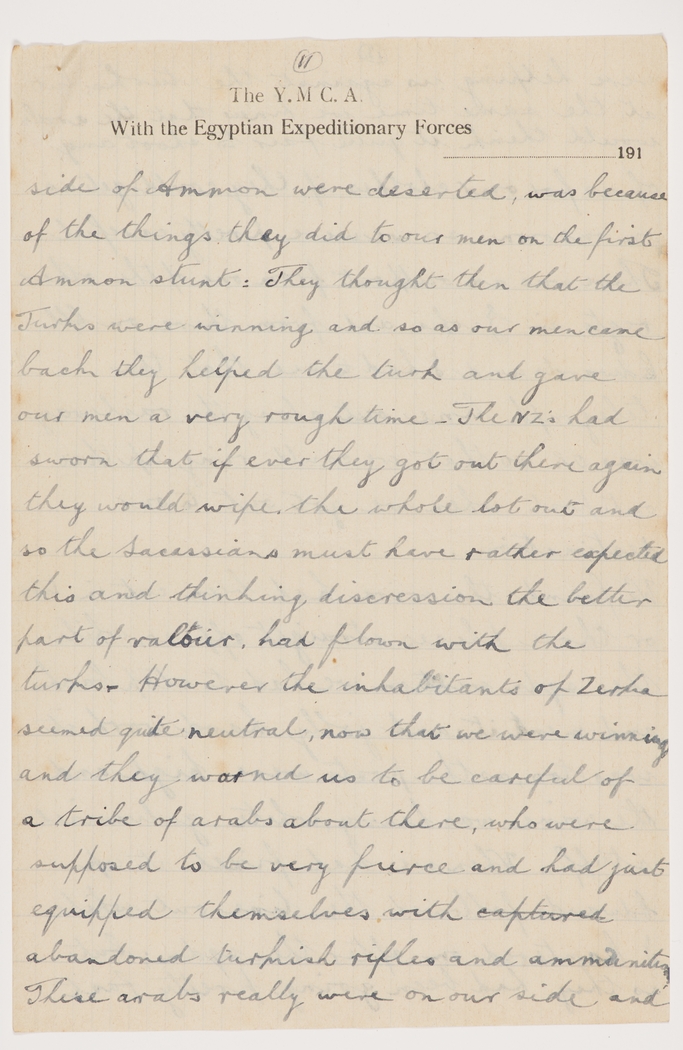 11
The Y.M C. A.
With the Egyptian Expeditionary Forces
191
side of Ammon were deserted, was because
of the things they did to our men on the first
Ammon stunt : They thought then that the
Turks were winning and so as our men came
back they helped the turk and gave
our men a very rough time - The NZ's had
sworn that if ever they got out there again
they would wipe the whole lot out and
so the Sacassians must have rather expected
this and thinking discression the better
part of valour, had flown with the
turks. However the inhabitants of Zerka
seemed quite neutral, now that we were winning
and they warned us to be careful of
a tribe of arabs about there, who were
supposed to be very fierce and had just
equipped themselves with captured
abandoned turkish rifles and ammunition
These arabs really were on our side and